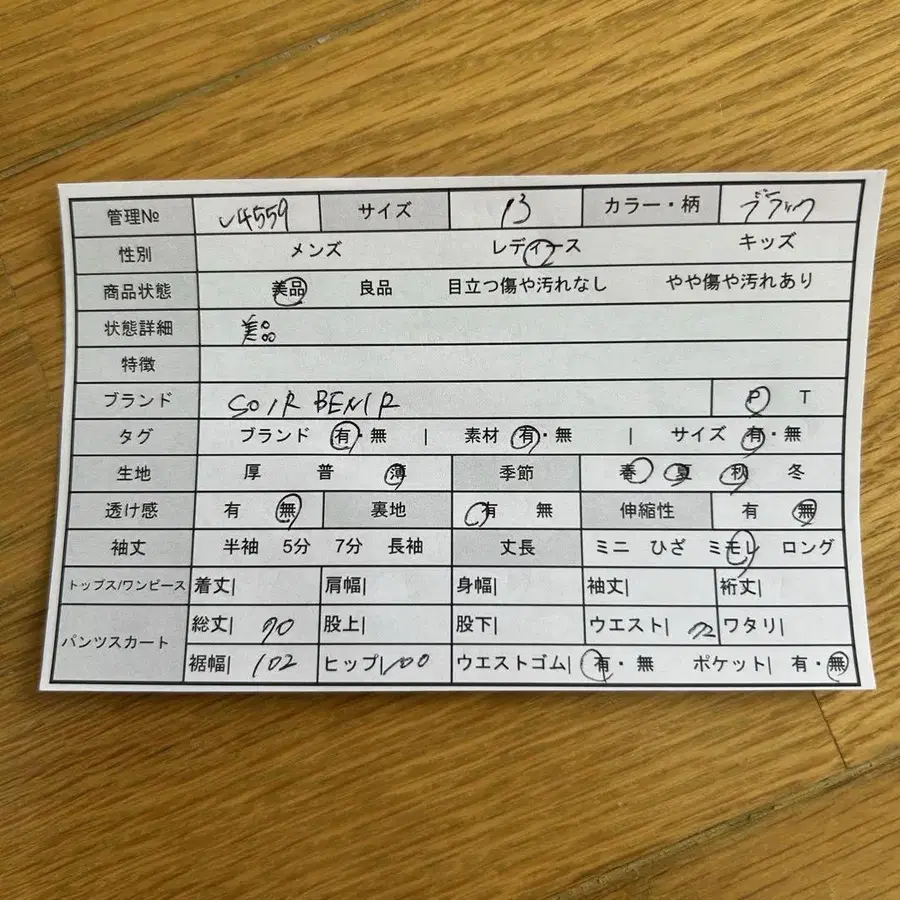 管理№ v4559 サイズ 13 カラー・柄 ブラック
性別 メンズ レディース キッズ
商品状態 美品 良品 目立つ傷や汚れなし やや傷や汚れあり
状態詳細 美品
特徴
ブランド SOIR BENIR P T
タグ ブランド 有・無 | 素材 有・無 | サイズ 有・無
生地 厚 普 薄 季節 春 夏 秋 冬
透け感 有 無 裏地 有 無 伸縮性 有 無
袖丈 半袖 5分 7分 長袖 丈長 ミニ ひざ ミモレ ロング
トップス/ワンピース 着丈| 肩幅| 身幅| 袖丈| 裄丈|
パンツスカート 総丈| 70 股上| 股下| ウエスト| 72 ワタリ|
裾幅| 102 ヒップ| 100 ウエストゴム| 有・無 ポケット| 有・無